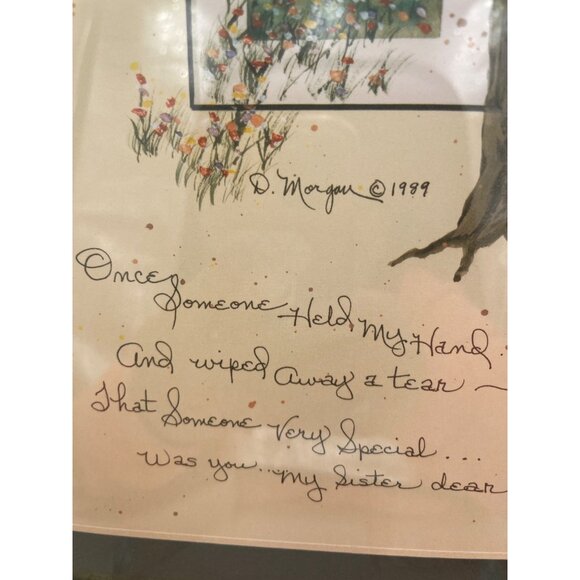 D. Morgan ©1989
Once Someone Held My Hand..
And wiped away a tear —
That Someone Very Special...
Was you.. My Sister dear